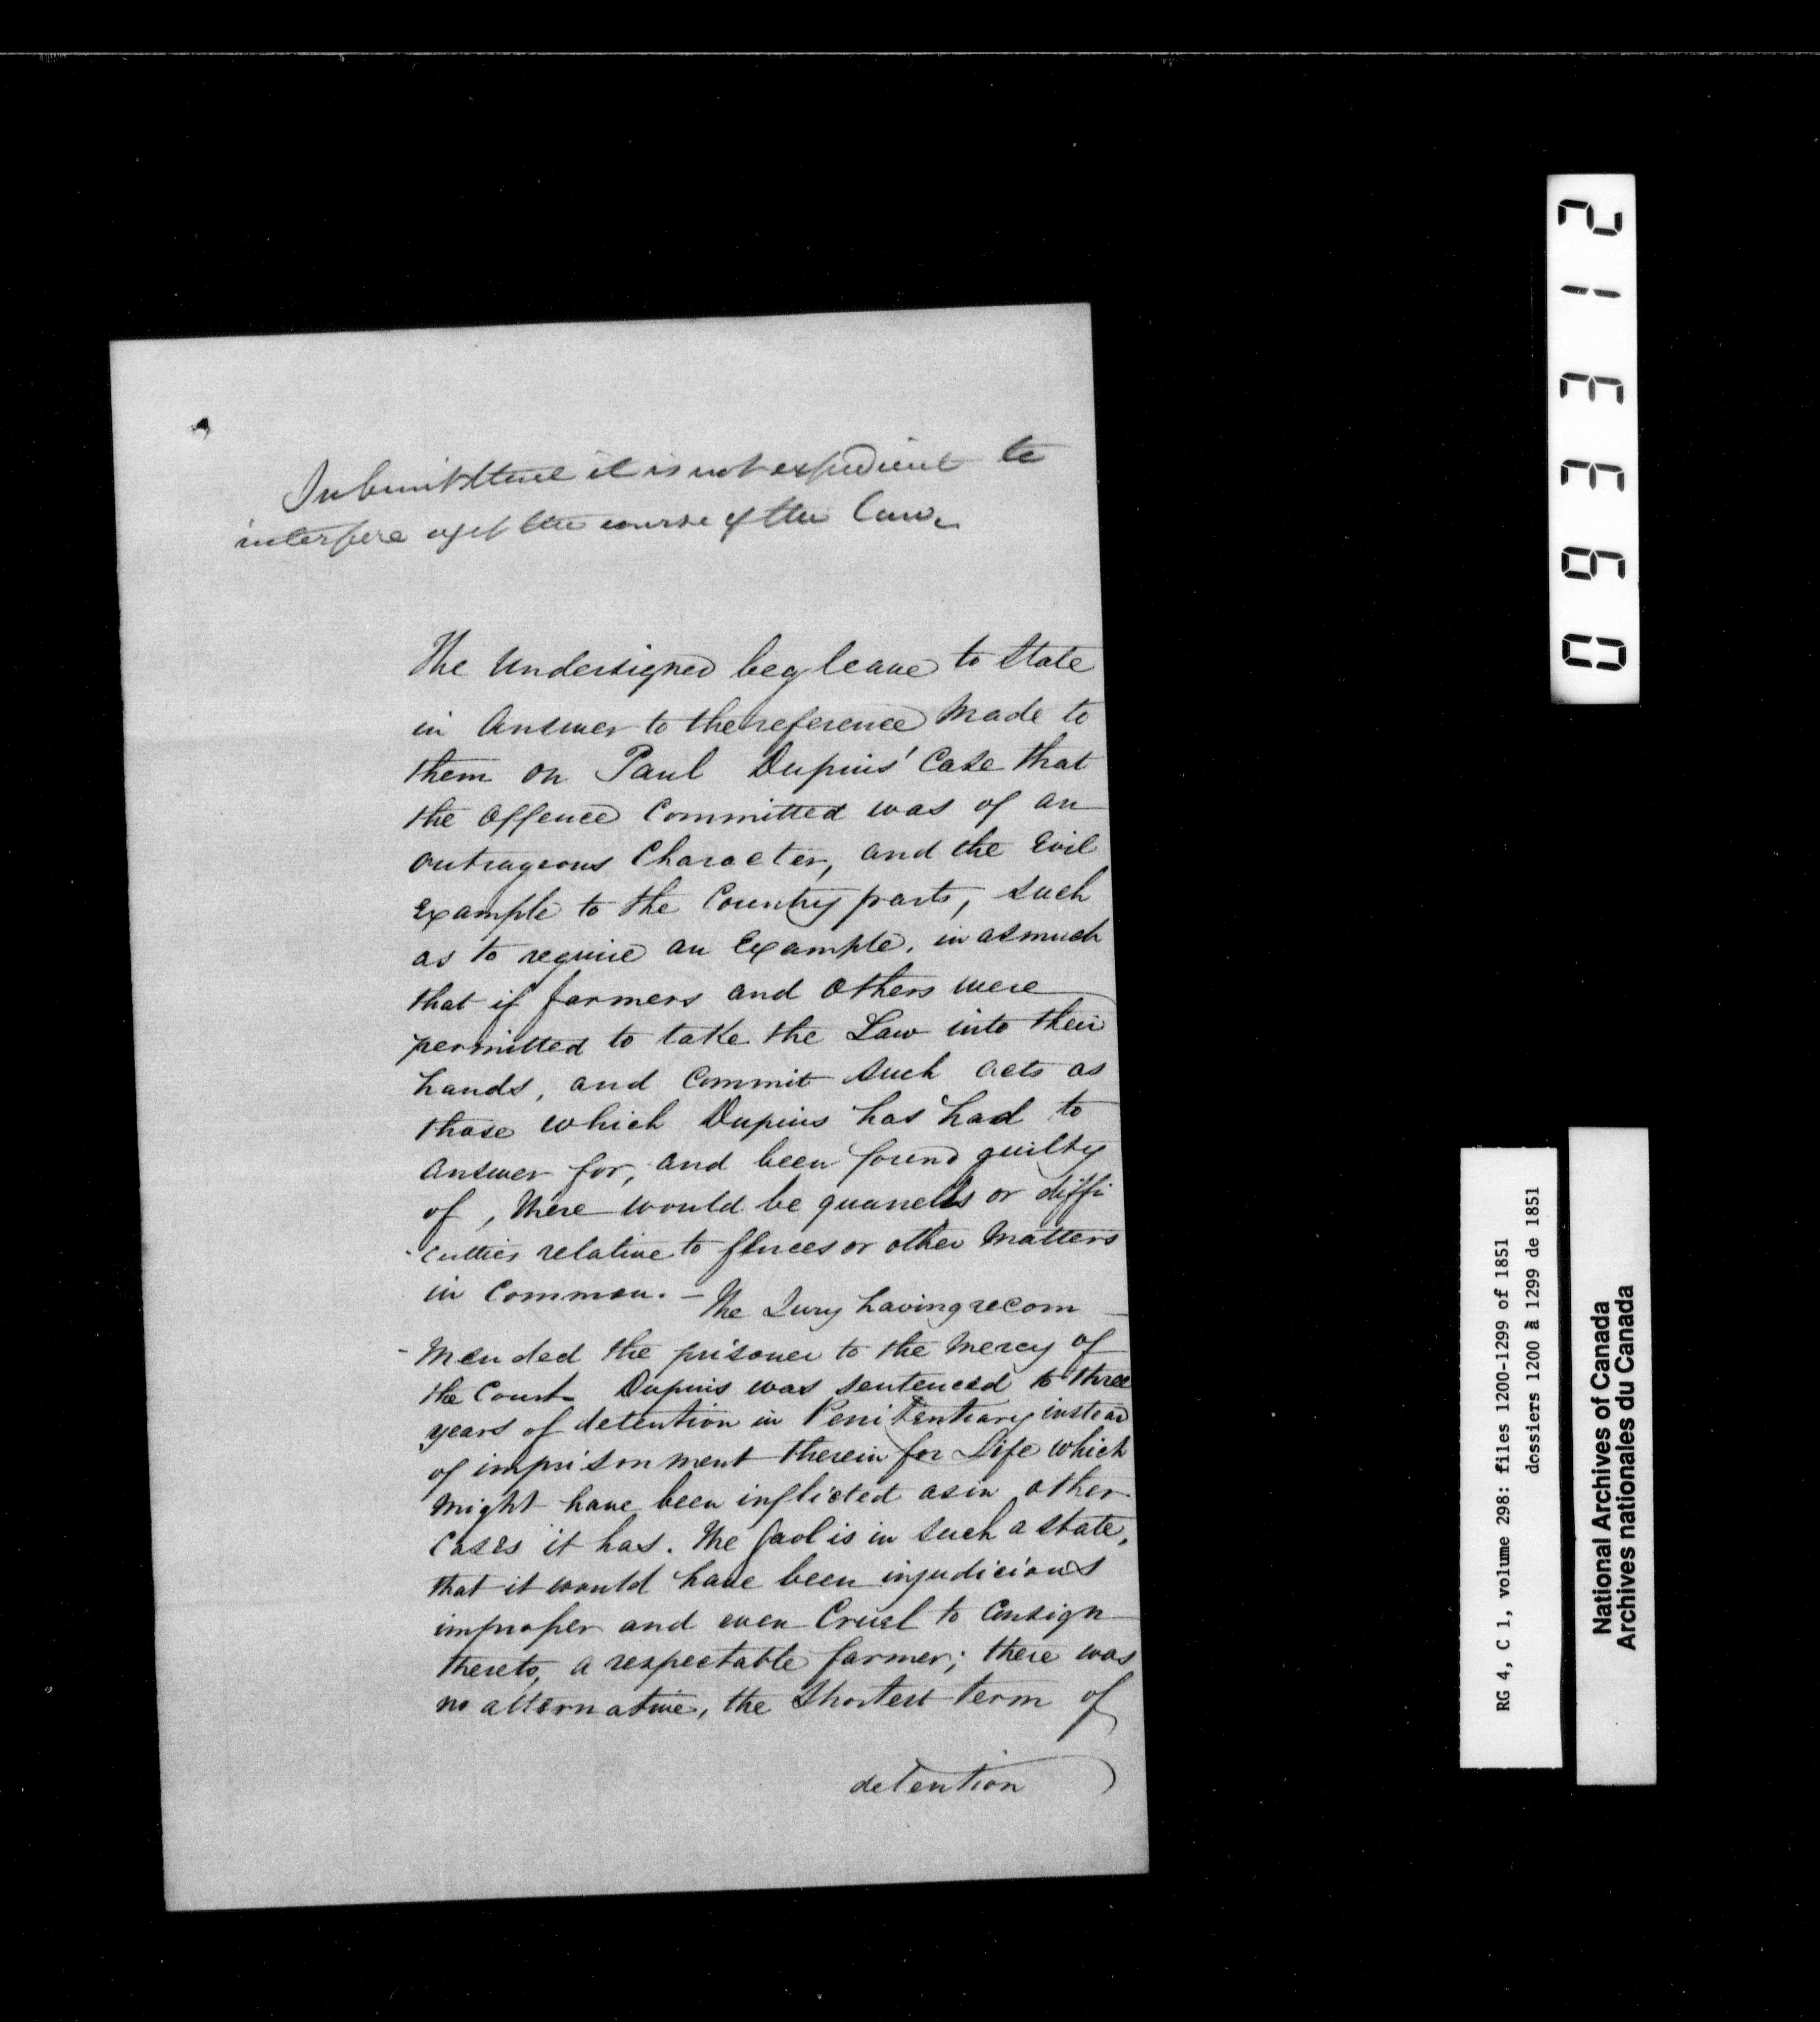 Submit that it is not expedient to
interfere agst the course of the Law.
The Undersigned beg leave to State
in Answer to the reference Made to
them on Paul Dupuis' Case that
the Offence Committed was of an
Outrageous Character, and the Evil
Example to the Country parts, such
as to require an Example, in asmuch
that if farmers and Others were
permitted to take the Law into their
hands, and Commit such acts as
those which Dupuis has had to
Answer for, and been found guilty
of, there would be quarrells or diffi
-culties relative to fences or other Matters
in Common. - The Jury having recom
-mended the prisoner to the Mercy of
the Court Dupuis was sentenced to three
years of detention in Penitentiary instead
of imprisonment therein for Life which
Might have been inflicted as in other
Cases it has. The Gaol is in such a state,
that it would have been injudicious
improper and even Cruel to Consign
thereto, a respectable farmer; there was
no alternative, the Shortest term of
detention
096 3312
RG 4, C 1, volume 298: files 1200-1299 of 1851
dossiers 1200 à 1299 de 1851
National Archives of Canada
Archives nationales du Canada